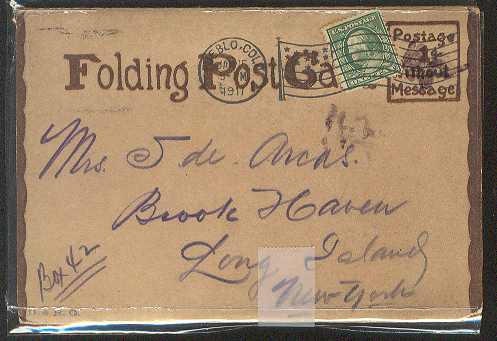 Folding Post Ca
PUEBLO, COL
1917
U.S. POSTAGE
Postage
1¢
Without
Message
Mrs. J de Arcas.
Brook Haven
Long Island
New York
Box 42